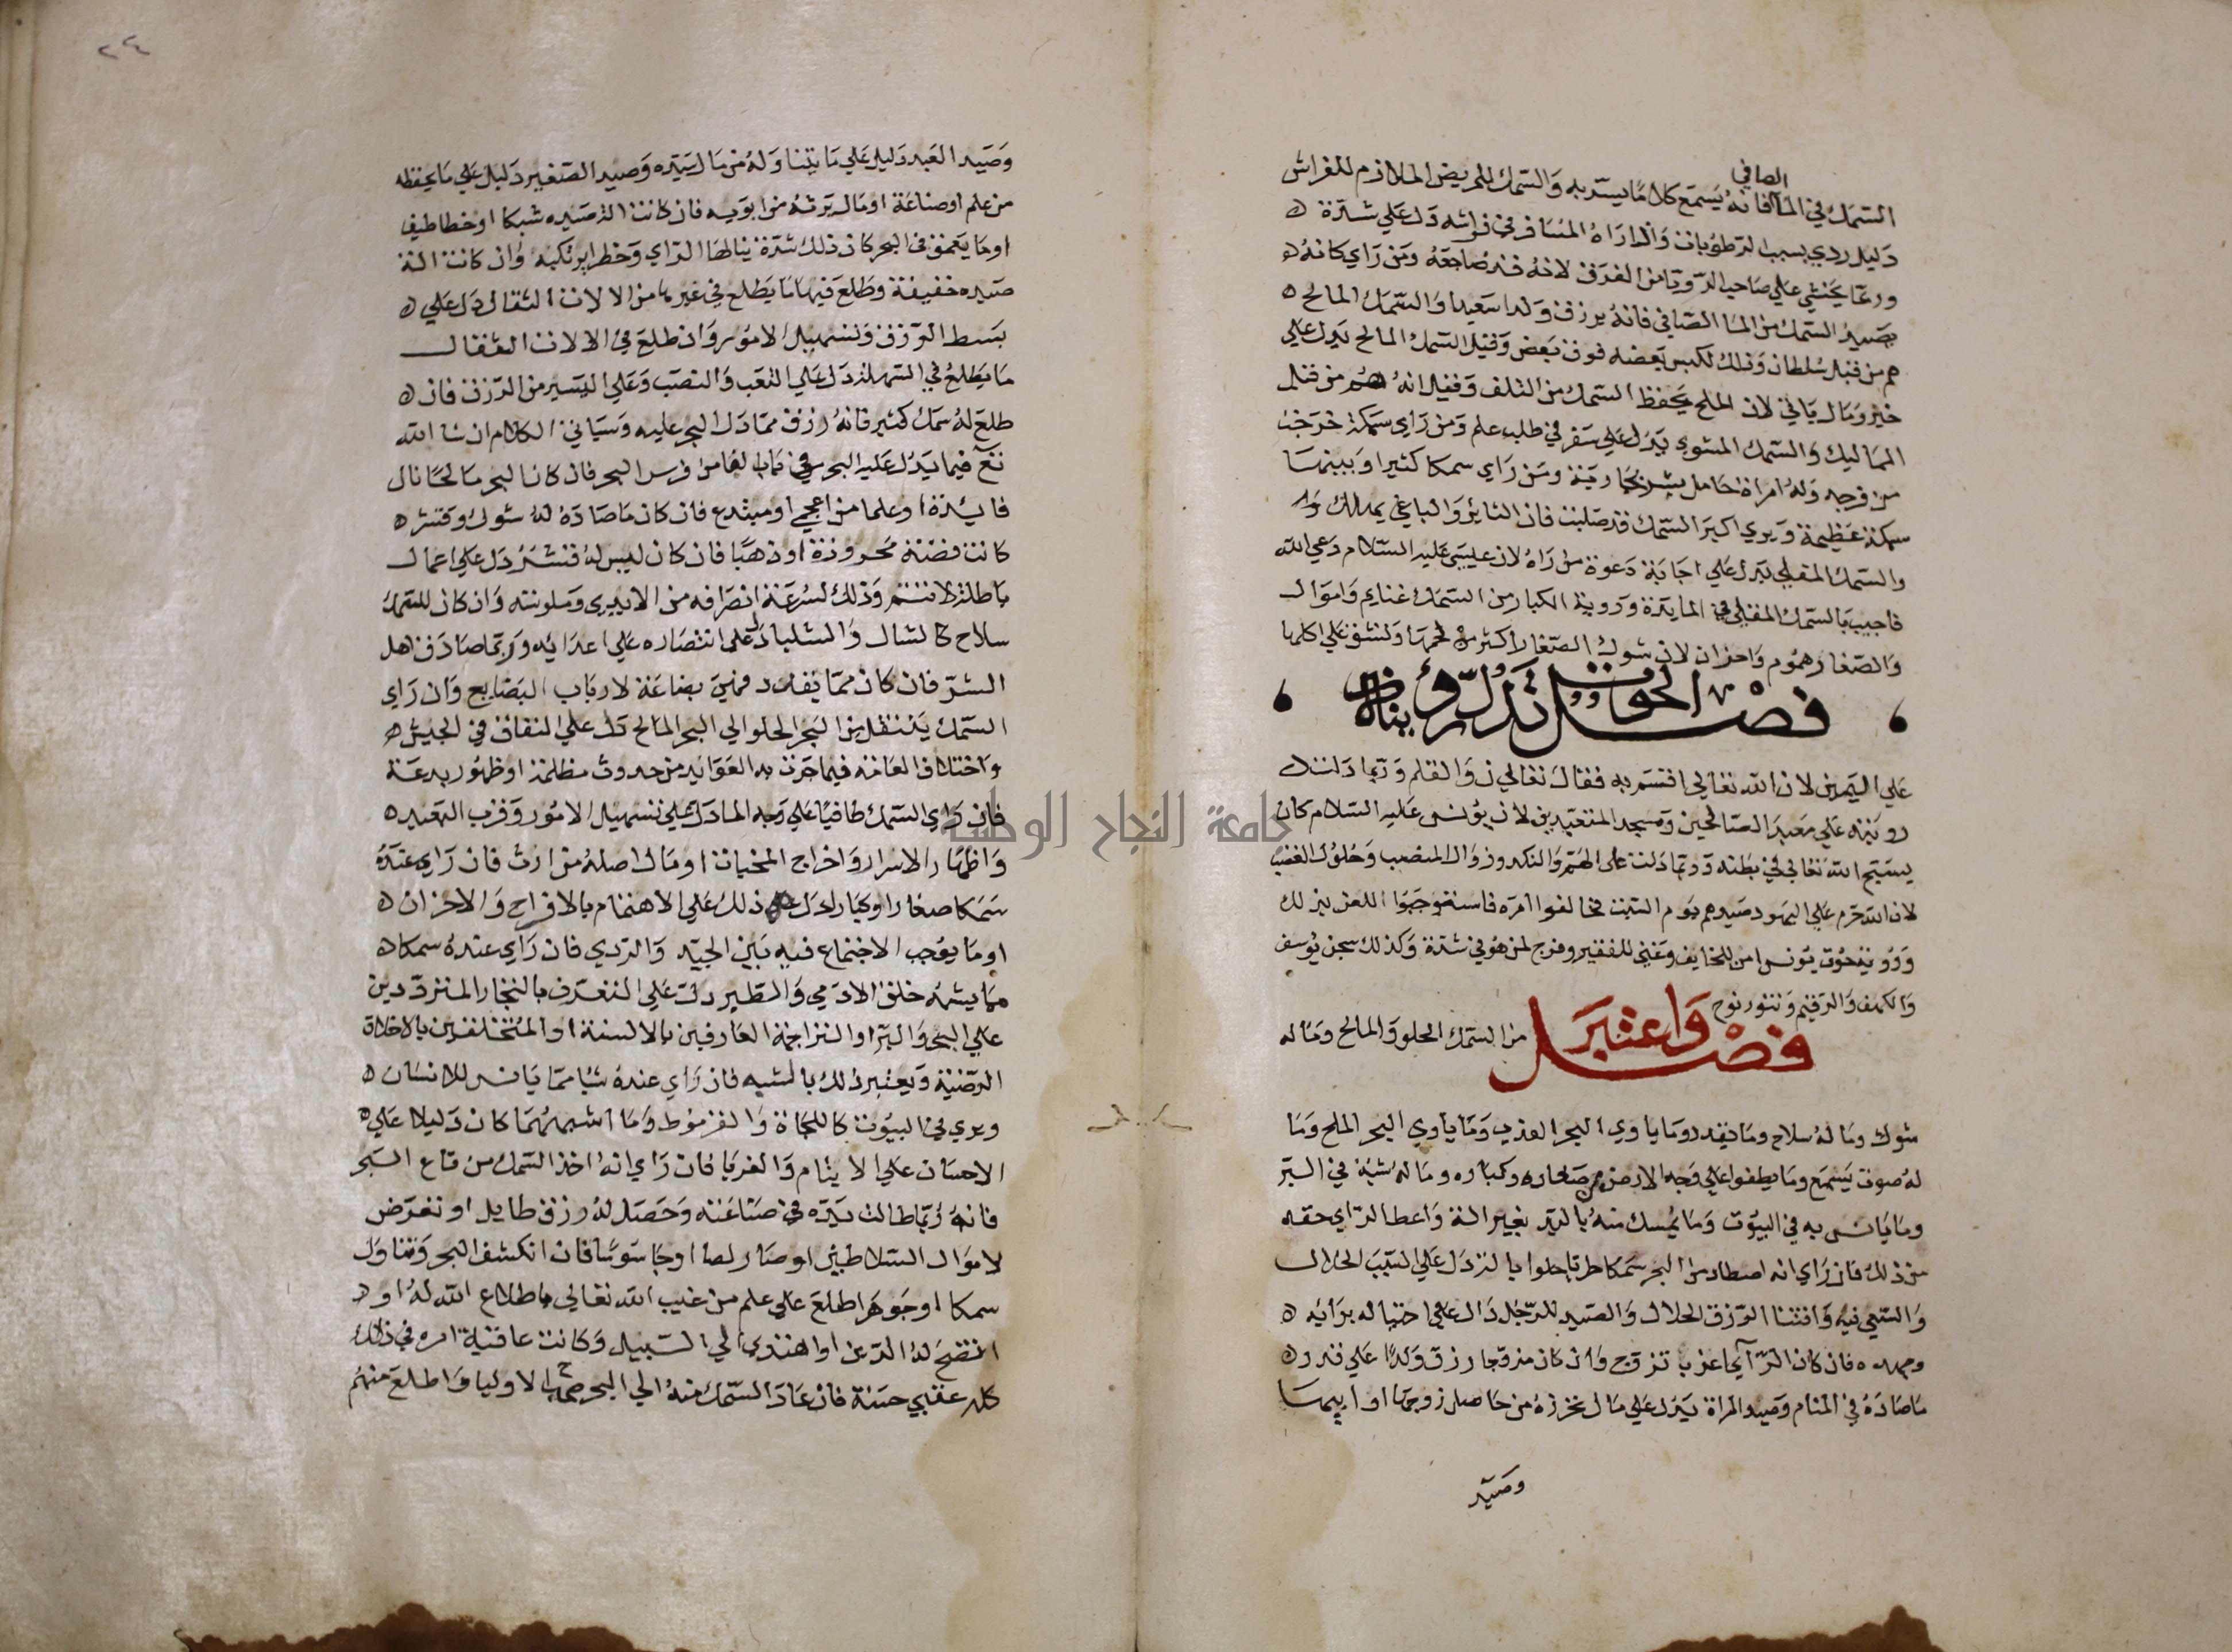 الصافي
السمك في الماء فانه يسمع كلاما يسر به والسمك للمريض الملازم للفراش
دليل ردي بسبب الرطوبات واذا راه المسافر في فراشه دل علي شدة
وربما يخشي علي صاحب الرويا من الغرق لانه قد ضاجعه ومن راي كانه
يصيد السمك من الما الصافي فانه يرزق ولدا سعيدا والسمك المالح
هم من قبل سلطان وذلك لكبس بعضه فوق بعض وقيل السمك المالح يدل علي
خير ومال باقي لان الملح يحفظ السمك من التلف وقيل انه هم من قبل
المماليك والسمك المشوي يدل علي سفر في طلب علم ومن راي سمكة خرجت
من فرجه وله امراة حامل بشر بجارية ومن راي سمكا كثيرا وبينها
سمكة عظيمة ويري اكبر السمك قد صلبت فان الثاير والباغي يهلك
والسمك المقلي يدل علي اجابة دعوة من راه لان عيسي عليه السلام دعي الله
فاجيب بالسمك المقلي في المايدة وروية الكبار من السمك غنايم واموال
والصغار هموم واحزان لان شوك الصغار اكثر من لحمها وتشق علي اكلها
فصل الحوت تدل رؤيته
علي اليمين لان الله تعالي اقسم به فقال تعالي ن والقلم وربما دلت
رويته علي معبد الصالحين ومسجد المتعبدين لان يونس عليه السلام كان
يسبح الله تعالي في بطنه وربما دلت علي الهم والنكد وزوال المنصب وحلول الغضب
لان الله حرم علي اليهود صيدهم يوم السبت فخالفوا امره فاستوجبوا اللعن بذلك
ورؤية حوت يونس امن للخايف وغني للفقير وفرج لمن هو في شدة وكذلك سجن يوسف
والكهف والرقيم وتنور نوح
فصل واعتبر من السمك الحلو والمالح وما له
شوك وما له سلاح وما يقدد وما ياوي البحر العذب وما ياوي البحر الملح وما
له صوت يسمع وما يطفوا علي وجه الارض من صغاره وكباره وما له شبه في البر
وما يانس به في البيوت وما يمسك منه باليد بغير الة واعطا الراي حقه
من ذلك فان راي انه اصطاد من البحر سمكا طريا حلوا بالة دل علي السبب الحلال
والسعي فيه واقتنا الرزق الحلال والصيد للرجل دال علي احتياله برايه
وجهده فان كان الرائي اعزبا تزوج وان كان متزوجا رزق ولدا علي قدر
ما صاده في المنام وصيد المراة يدل علي مال تحرزه من حاصل زوجها او ابيها
وصيد
٢٤
وصيد العبد دليل علي ما يتناوله من مال سيده وصيد الصغير دليل علي ما يحفظه
من علم او صناعة او مال يرثه من ابويه فان كانت الة صيده شبكا او خطاطيف
او ما يتعمق في البحر كان ذلك شدة ينالها الراي وخطر يرتكبه وان كانت الة
صيده خفيفة وطلع فيها ما يطلع في غيرها من الالات الثقال دل علي
بسط الرزق وتسهيل الامور وان طلع في الالات الثقال
ما يطلع في السهلة دل علي التعب والنصب وعلي اليسير من الرزق فان
طلع له سمك كثير فانه رزق مما دل البحر عليه وسياتي الكلام ان شا الله
تع فيما يدل عليه البحر في باب الفا من فرس البحر فان كان البحر مالحا نال
فايدة او علما من اعجمي او مبتدع فان كان ما صاده له شوك وقشر
كانت فضة محروزة او ذهبا فان كان ليس له قشر دل علي اعمال
باطلة لا تتم وذلك لسرعة انصرافه من الايدي وملوسته وان كان للسمك
سلاح كالشال والشلبا دل علي انتصاره علي اعدايه وربما صادف اهل
الشر فان كان مما يقدد فهي بضاعة لارباب البضايع وان راي
السمك ينتقل من البحر الحلو الي البحر المالح دل علي النفاق في الجيش
واختلاف العامة فيما جرت به العوايد من حدوث مظلمة او ظهور بدعة
فان راي السمك طافيا علي وجه الما دل علي تسهيل الامور وقرب البعيد
واظهار الاسرار واخراج المخبات او مال اصله من ارث فان راي عنده
سمكا صغارا وكبارا دل ذلك علي الاهتمام بالافراح والاحزان
او ما يوجب الاجتماع فيه بين الجيد والردي فان راي عنده سمكا
مما يشبه خلق الادمي والطير دل علي التعرف بالتجار المترددين
علي البحر والبر او التراجمة العارفين بالالسنة او المتخلقين بالاخلاق
الرضية ويعتبر ذلك بالشبه فان راي عنده شيا مما يانس للانسان
ويربي في البيوت كاللجاة والقرموط وما اشبههما كان دليلا علي
الاحسان علي الايتام والغربا فان راي انه اخذ السمك من قاع البحر
فانه ربما طالت يده في صناعته وحصل له رزق طايل او تعرض
لاموال السلاطين او صار لصا او جاسوسا فان انكشف البحر وتناول
سمكا او جوهرا طلع علي علم من غيب الله تعالي باطلاع الله له او
اتضح له الدين او اهتدي الي السبيل وكانت عاقبة امره في ذلك
كله عقبي حسنة فان عاد السمك منه الي البحر صحب الاوليا واطلع منهم
جامعة النجاح الوطنية